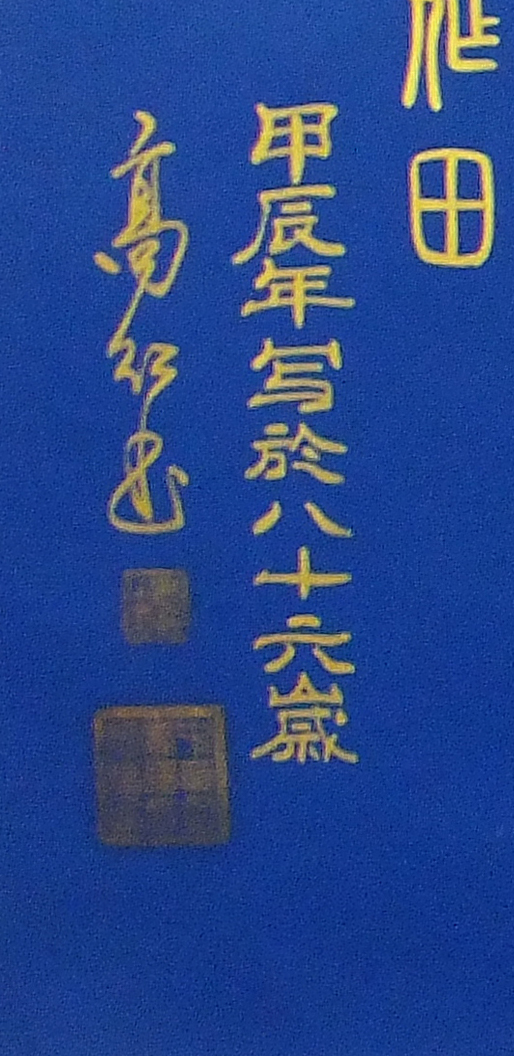 田
甲辰年写於八十六歲
高